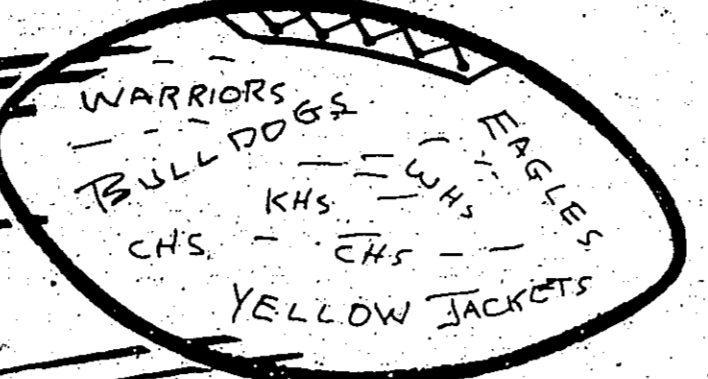 WARRIORS
BULLDOGS
EAGLES
WHS
KHS
CHS
CHS
YELLOW JACKETS